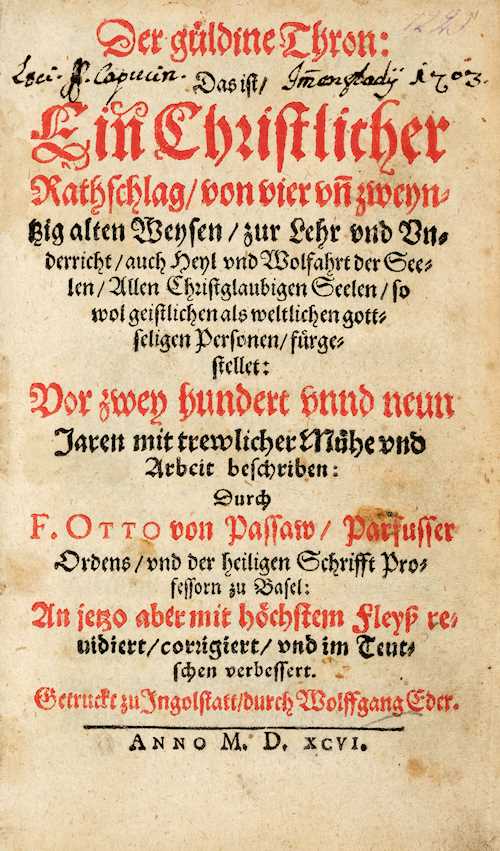 Der güldine Thron:
Loci. FF. Capucin. Das ist/ Im̃enstadij 1703.
Ein Christlicher
Rathschlag/ von vier vñ zweyn-
tzig alten Weysen/ zur Lehr vnd Vn-
derricht/ auch Heyl vnd Wolfahrt der See-
len/ Allen Christglaubigen Seelen/ so
wol geistlichen als weltlichen gott-
seligen Personen/ fürge-
stellet:
Vor zwey hundert vnnd neun
Jaren mit trewlicher Mühe vnd
Arbeit beschriben:
Durch
F. OTTO von Passaw/ Parfusser
Ordens/ vnd der heiligen Schrifft Pro-
fessorn zu Basel:
An jetzo aber mit höchstem Fleyß re-
uidiert/ corrigiert/ vnd im Teut-
schen verbessert.
Getruckt zu Ingolstatt/ durch Wolffgang Eder.
ANNO M. D. XCVI.